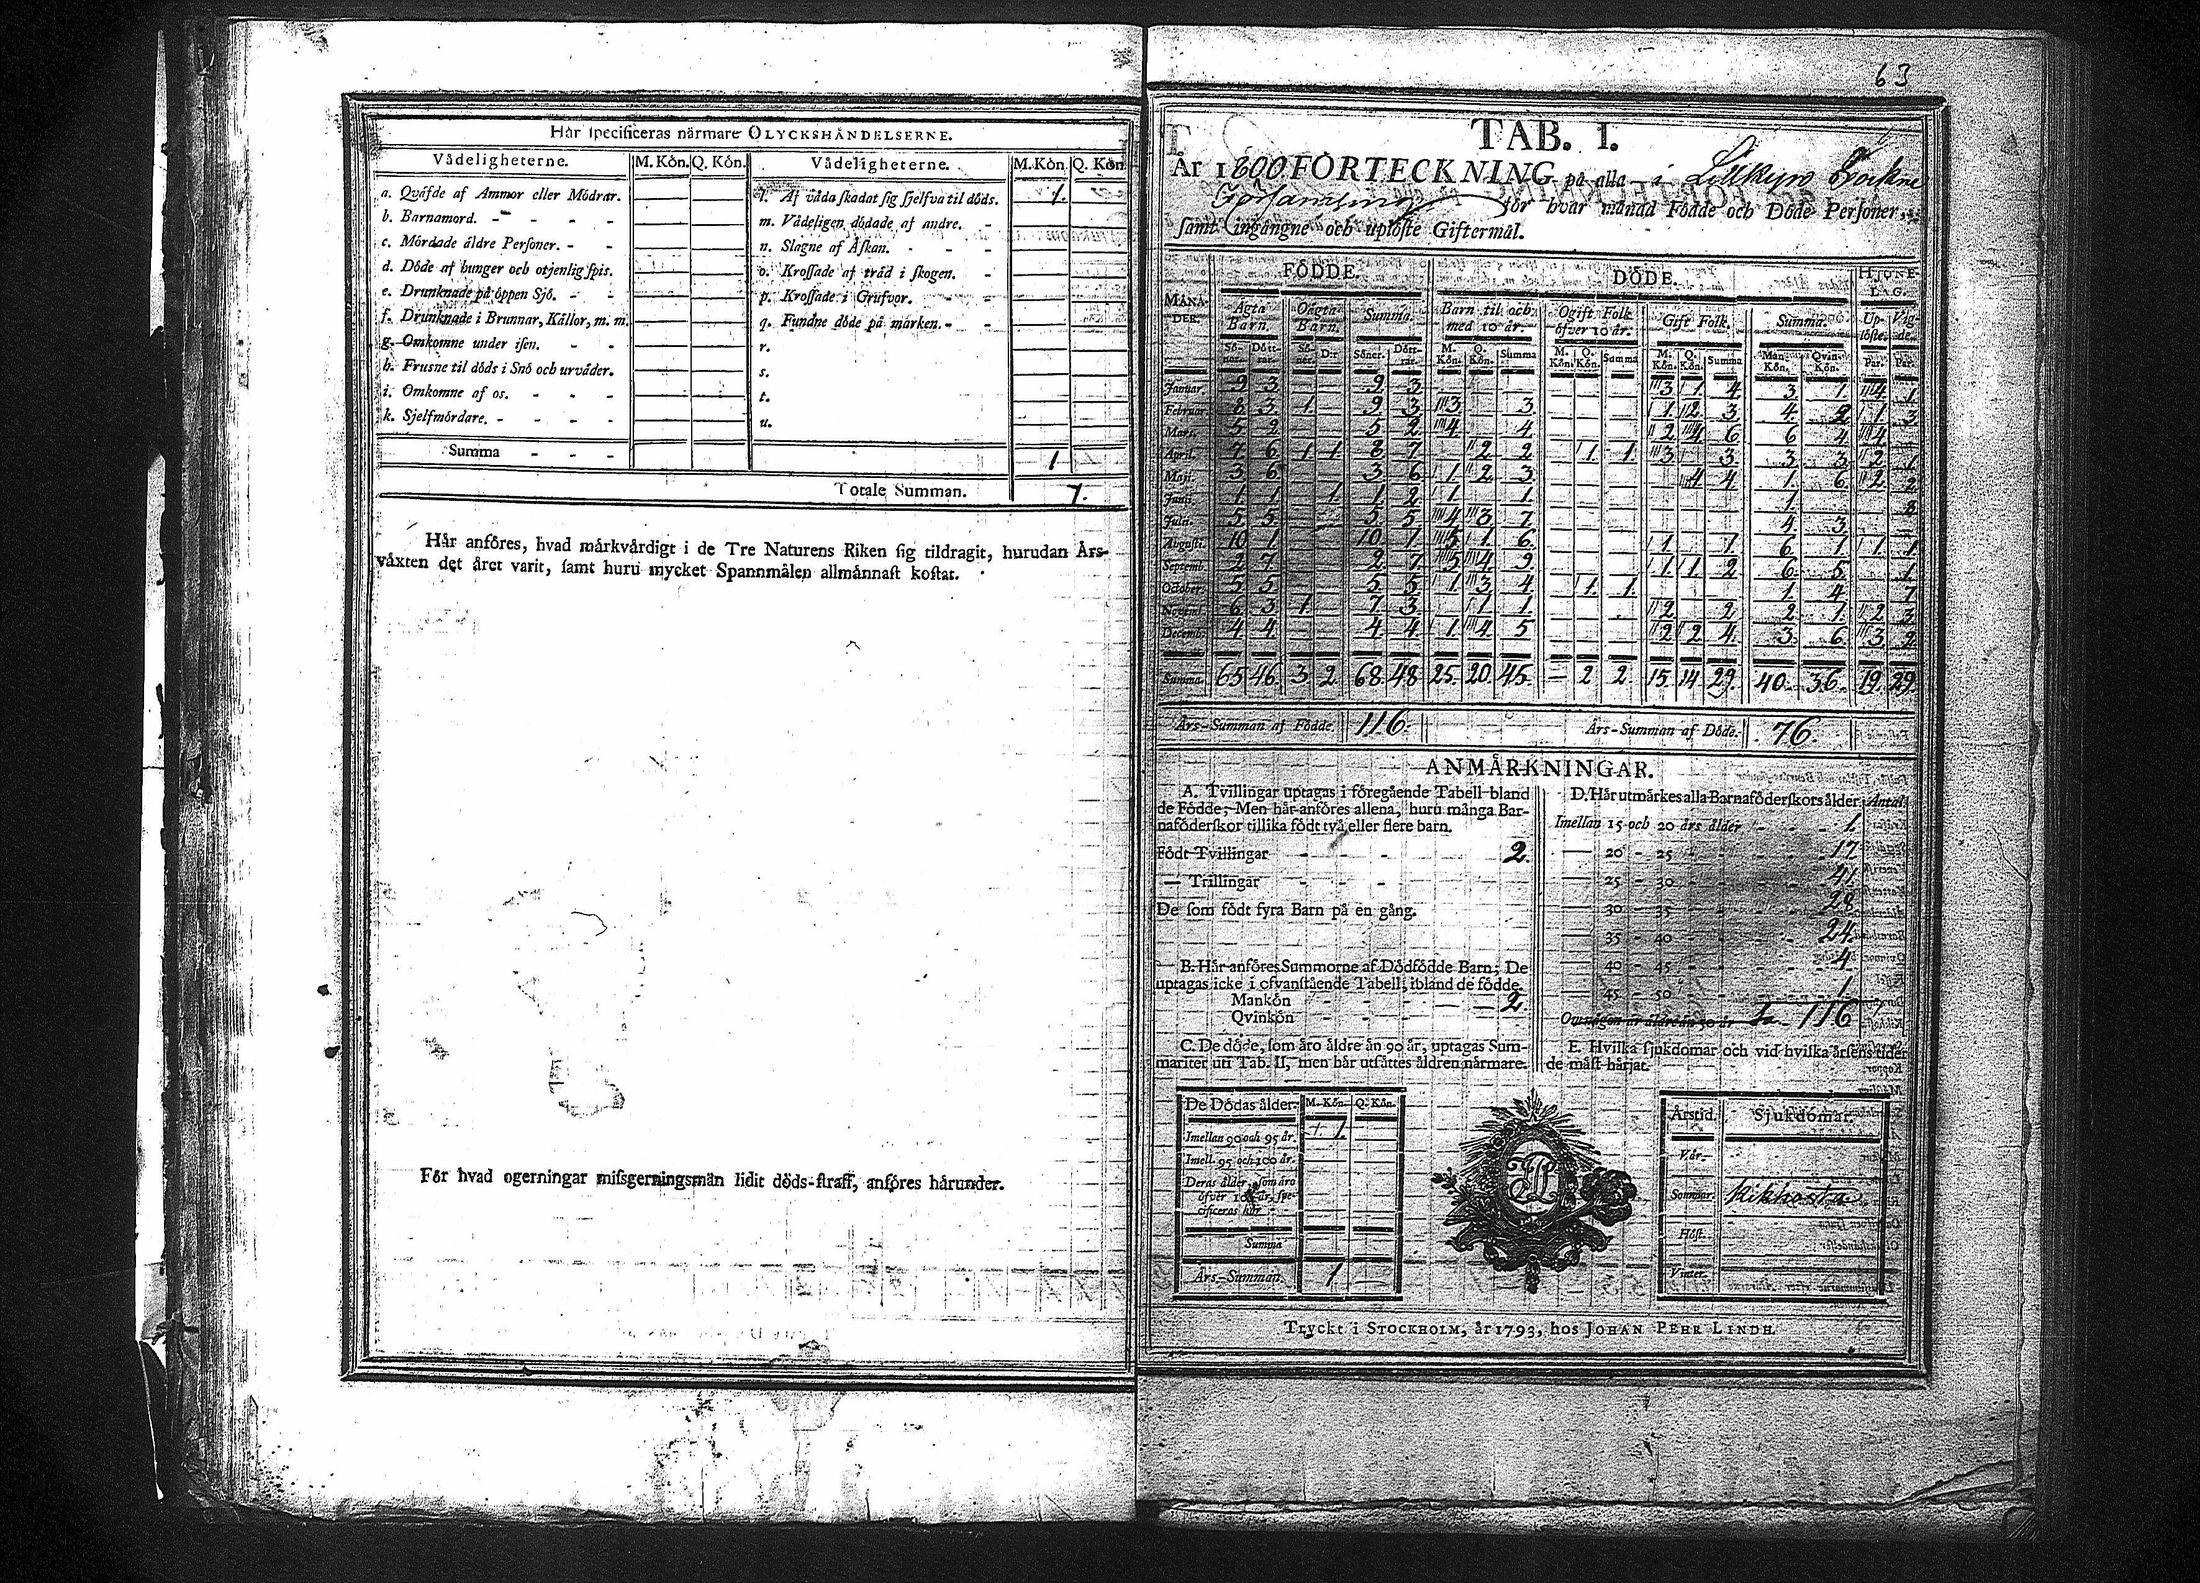 Hår specificeras närmare OLYCKSHÄNDELSERNE.
Vådeligheterne. M. Kön. Q. Kön. Vådeligheterne. M. Kön. Q. Kön.
a. Qväfde af Ammor eller Mödrar. l. Af våda skadat sig sjelfva til döds. 1.
b. Barnamord. m. Vådeligen dödade af andre.
c. Mördade äldre Personer. n. Slagne af Åskan.
d. Döde af hunger och otjenlig spis. o. Krossade af träd i skogen.
e. Drunknade på öppen Sjö. p. Krossade i Grufvor.
f. Drunknade i Brunnar, Källor, m. m. q. Fundne döde på marken.
g. Omkomne under isen. r.
h. Frusne til döds i Snö och urväder. s.
i. Omkomne af os. t.
k. Sjelfmördare. u.
Summa 1
Totale Summan. 7.
Hår anföres, hvad märkvärdigt i de Tre Naturens Riken sig tildragit, hurudan Års-
växten det året varit, samt huru mycket Spannmålen allmännast kostat.
För hvad ogerningar missgerningsmän lidit döds-straff, anföres härunder.
63
TAB. I.
År 1800 FÖRTECKNING på alla i Lillkyro Sockne
Församling för hvar månad Födde och Döde Personer,
samt ingångne och uplöste Giftermål.
FÖDDE. DÖDE. HJONELAG.
MÅNADER. Ägta Barn. Oägta Barn. Summa. Barn til och med 10 år. Ogift Folk öfver 10 år. Gift Folk. Summa. Uplöste. Vigde.
Söner. Döttrar. Söner. D:r Söner. Döttrar. M. Kön. Q. Kön. Summa M. Kön. Q. Kön. Summa M. Kön. Q. Kön. Summa Man-Kön. Qvin-Kön. Par. Par.
Januar. 9 3 9 3 3 1 4 3 1 4 1
Februar. 8 3 1 9 3 3 3 1 2 3 4 2 1 3
Mars. 5 2 5 2 4 4 2 4 6 6 4 4
April. 7 6 1 1 8 7 2 2 1 1 3 3 3 3 2 1
Maji. 3 6 3 6 1 2 3 4 4 1 6 2 2
Junii. 1 1 1 1 2 1 1 1 8
Julii. 5 5 5 5 4 3 7 4 3
Augusti. 10 1 10 1 5 1 6 1 1 6 1 1 1
Septemb. 2 7 2 7 5 4 9 1 1 2 6 5 1
October. 5 5 5 5 1 3 4 1 1 1 4 7
Novemb. 6 3 1 7 3 1 1 2 2 2 1 2 3
Decemb. 4 4 4 4 1 4 5 2 2 4 3 6 3 2
Summa. 65 46 3 2 68 48 25 20 45 — 2 2 15 14 29 40 36 19 29
Års-Summan af Födde. 116. Års-Summan af Döde. 76.
ANMÄRKNINGAR.
A. Tvillingar uptagas i föregående Tabell bland
de Födde; Men här anföres allena, huru många Bar-
naföderskor tillika födt två eller flere barn.
Födt Tvillingar 2.
— Trillingar
De som födt fyra Barn på en gång.
B. Här anföres Summorne af Dödfödde Barn; De
uptagas icke i ofvanstående Tabell, ibland de födde.
Mankön 2
Qvinkön
C. De döde, som äro äldre än 90 år, uptagas Sum-
mariter uti Tab. II, men här utsättes åldren närmare.
De Dödas ålder M. Kön. Q. Kön.
Imellan 90 och 95 år. 1
Imell. 95 och 100 år.
Deras ålder, som äro
öfver 100 år, spe-
cificeras här
Summa
Års-Summan. 1
D. Här utmärkes alla Barnaföderskors ålder Antal
Imellan 15 och 20 års ålder 1.
20 - 25 17
25 - 30 41
30 - 35 28
35 - 40 24
40 - 45 4
45 - 50 1
116
E. Hvilka sjukdomar och vid hvilka årsens tider
de mäst härjat.
Årstid. Sjukdomar.
Vår.
Sommar. Kikhosta
Höst.
Vinter.
Tryckt i STOCKHOLM, år 1793, hos JOHAN PEHR LINDH.